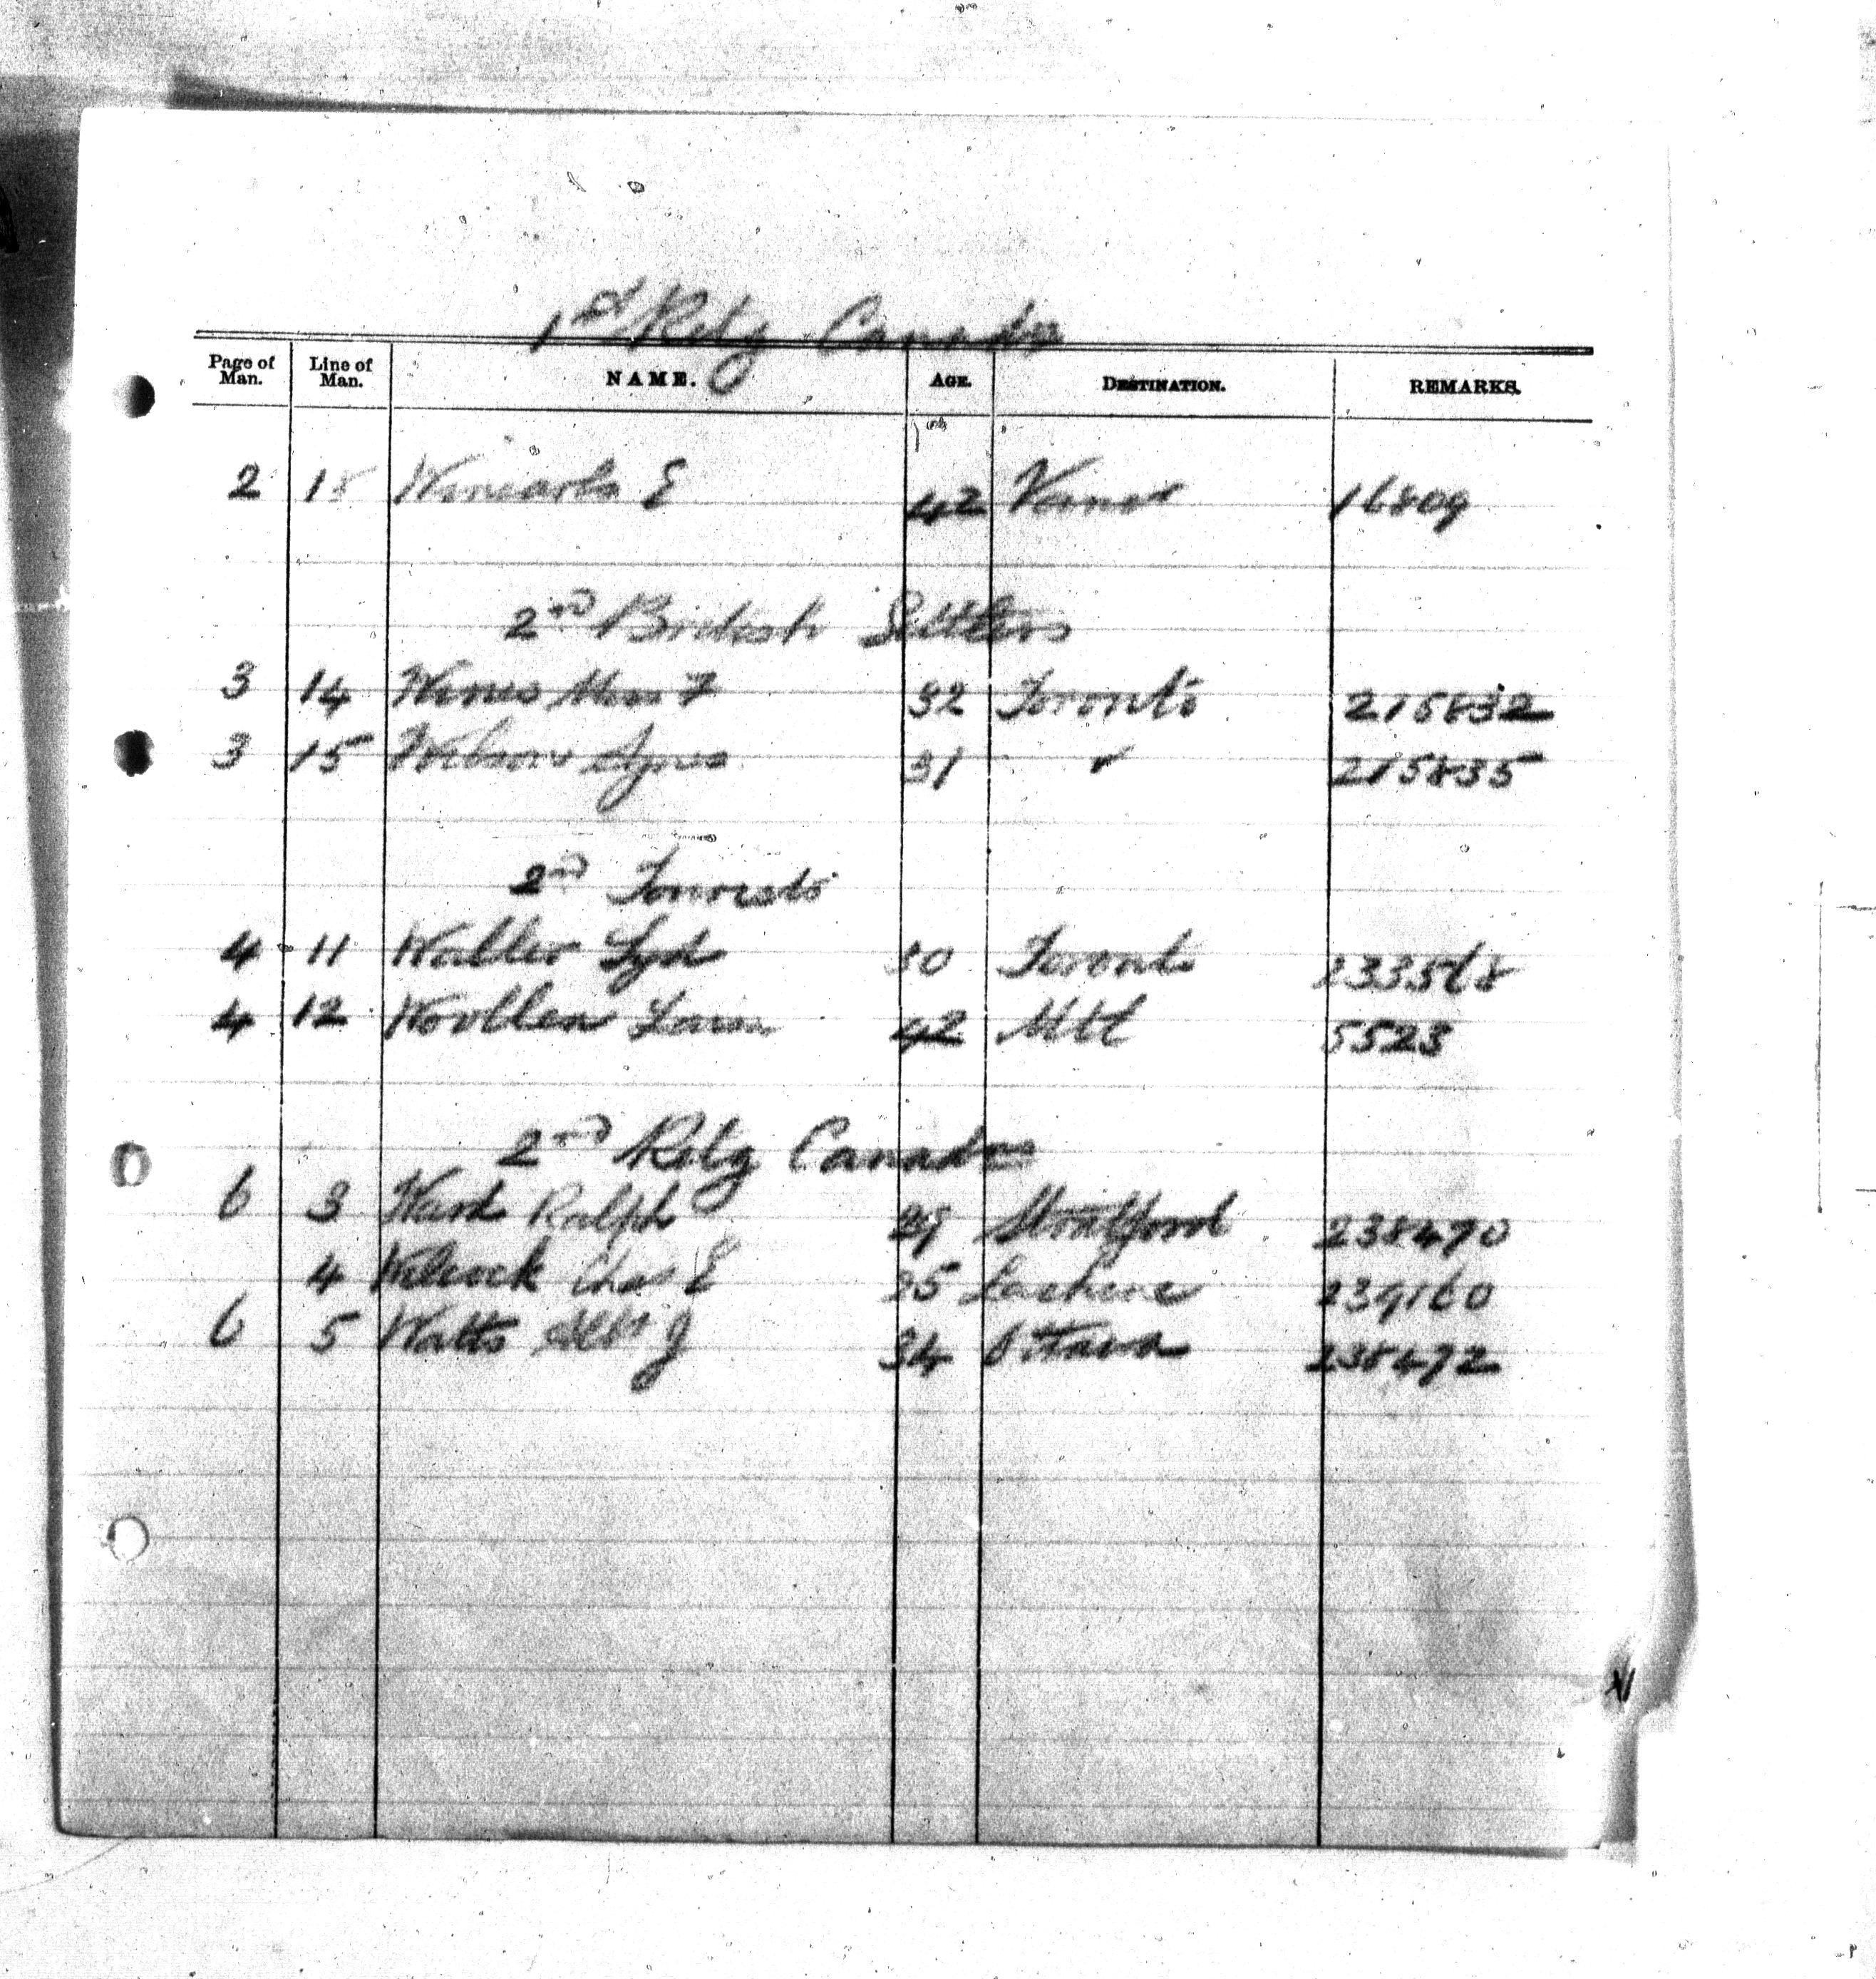 1st Retg Canada
Page of Man. Line of Man. NAME. AGE. DESTINATION. REMARKS.
2 18 E 42 16809
2nd British Settlers
3 14 Miss F 32 Toronto 215832
3 15 Wilson Agnes 31 " 215835
2nd Tourists
4 11 Waller Syd 30 Toronto 233568
4 12 Woollen 42 Mtl 5523
2nd Retg Canada
6 3 Ward Ralph 29 Stratford 238470
4 Wilcock Chas E 35 Lachine 239160
6 5 Watts Albt J 34 Ottawa 238472